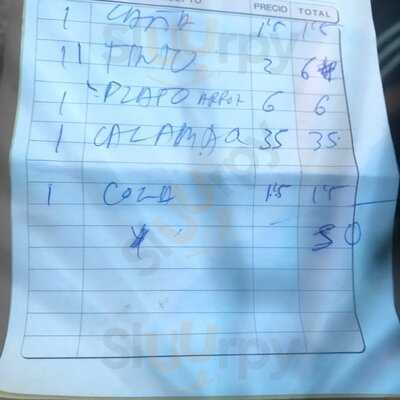 PRECIO TOTAL
1 CAÑA 1'5 1'5
11 TINTO 2 6
1 PLATO ARROZ 6 6
1 CALAMAR 35 35
1 COLA 1'5 1'5
50